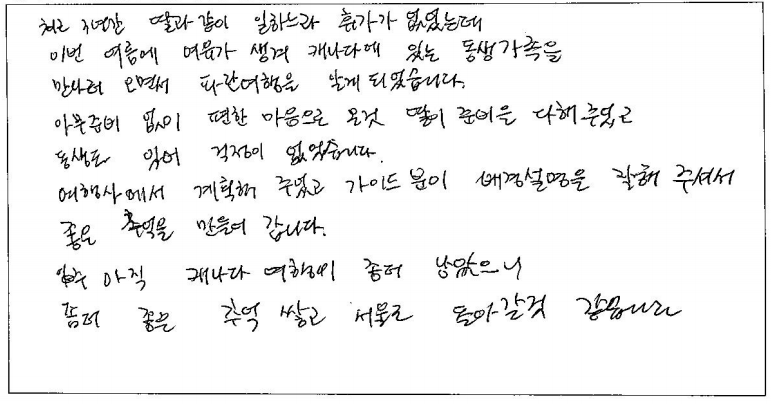 최근 3년간 딸과 같이 일하느라 휴가가 없었는데
이번 여름에 여유가 생겨 캐나다에 있는 동생가족을
만나러 오면서 파란여행을 찾게 되었습니다.
아무준비 없이 편한 마음으로 온것 딸이 준비을 다해 주었고
동생도 있어 걱정이 없었습니다.
여행사에서 계획해 주었고 가이드분이 배경설명을 잘해 주셔서
좋은 추억을 만들어 갑니다.
아직 캐나다 여행이 좀더 남았으니
좀더 좋은 추억 쌓고 서울로 돌아갈것 같습니다